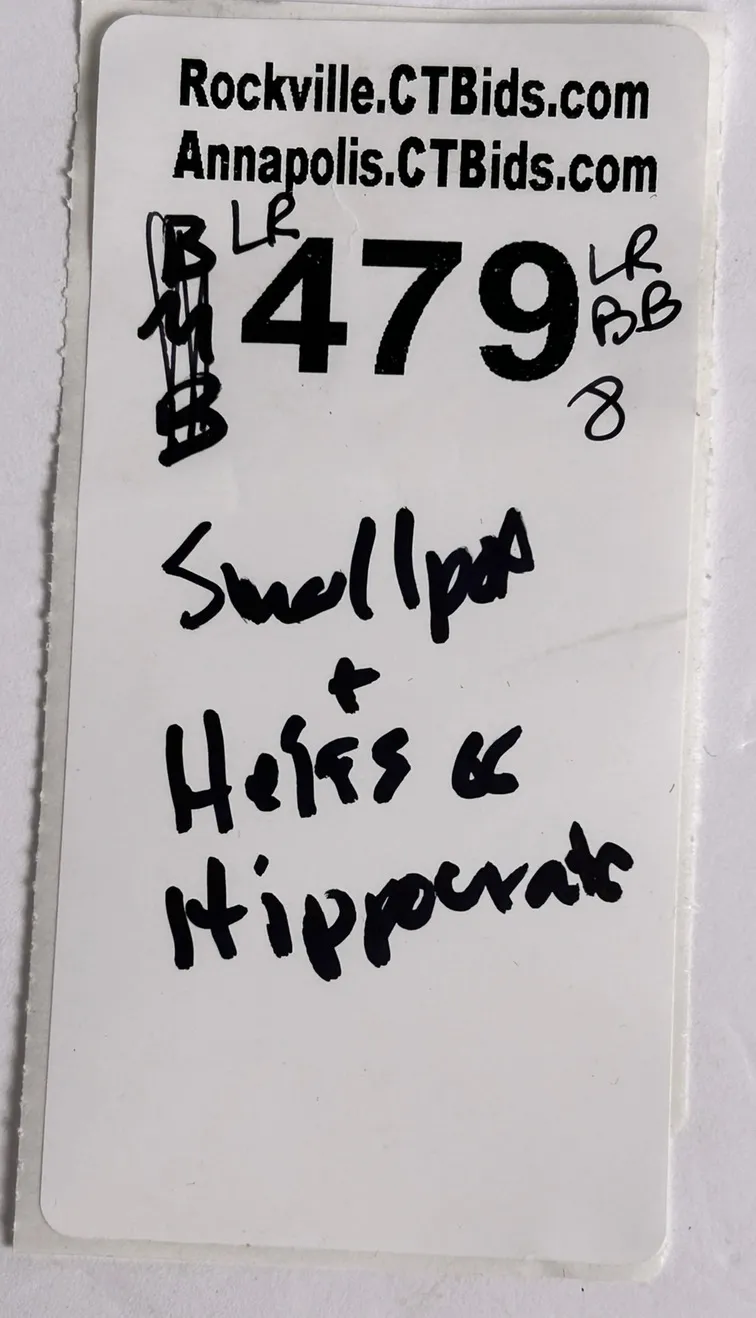 Rockville.CTBids.com
Annapolis.CTBids.com
LR 479 LR
BB
8
Smallpox
+
Heirs of
Hippocrates